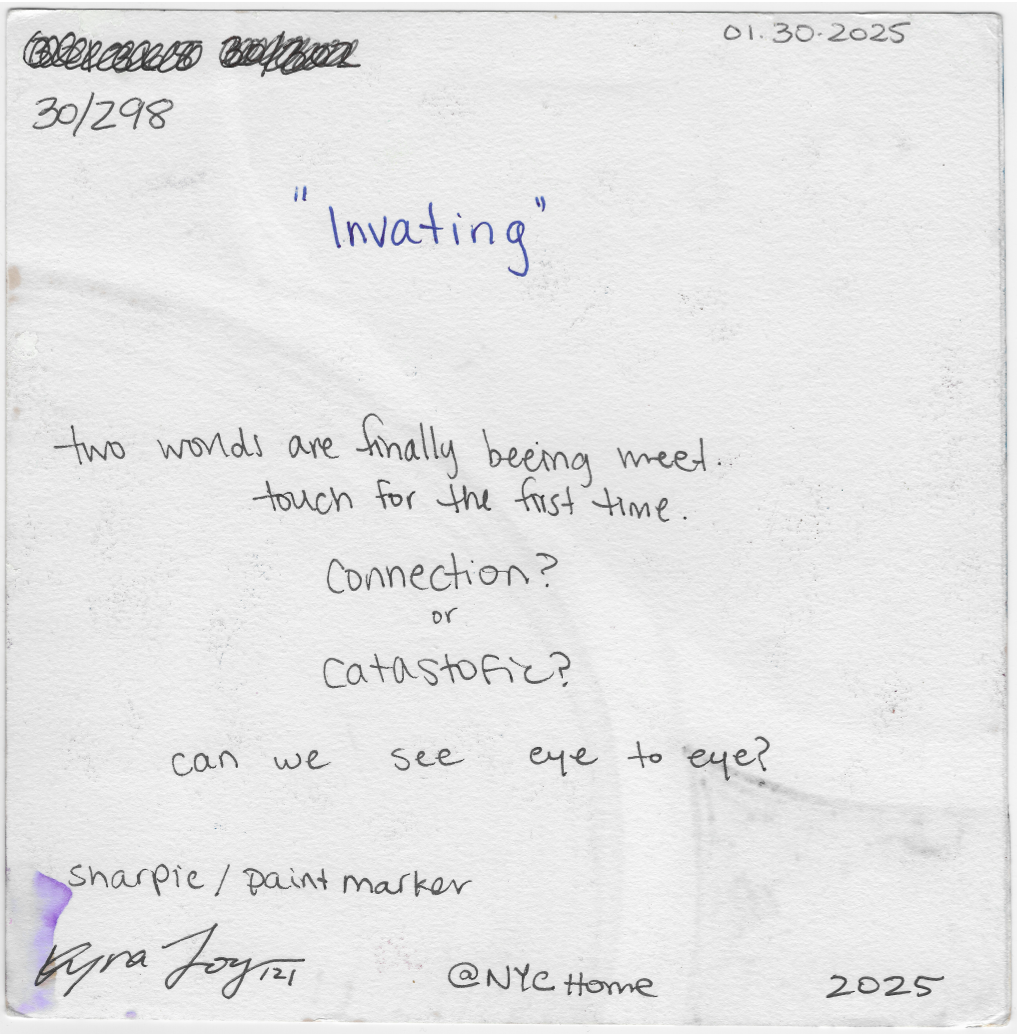 01.30.2025
30/298
"Invating"
two worlds are finally beeing meet.
touch for the first time.
Connection?
or
Catastofic?
can we see eye to eye?
sharpie / paint marker
Kyra Joy 121
@NYC Home 2025